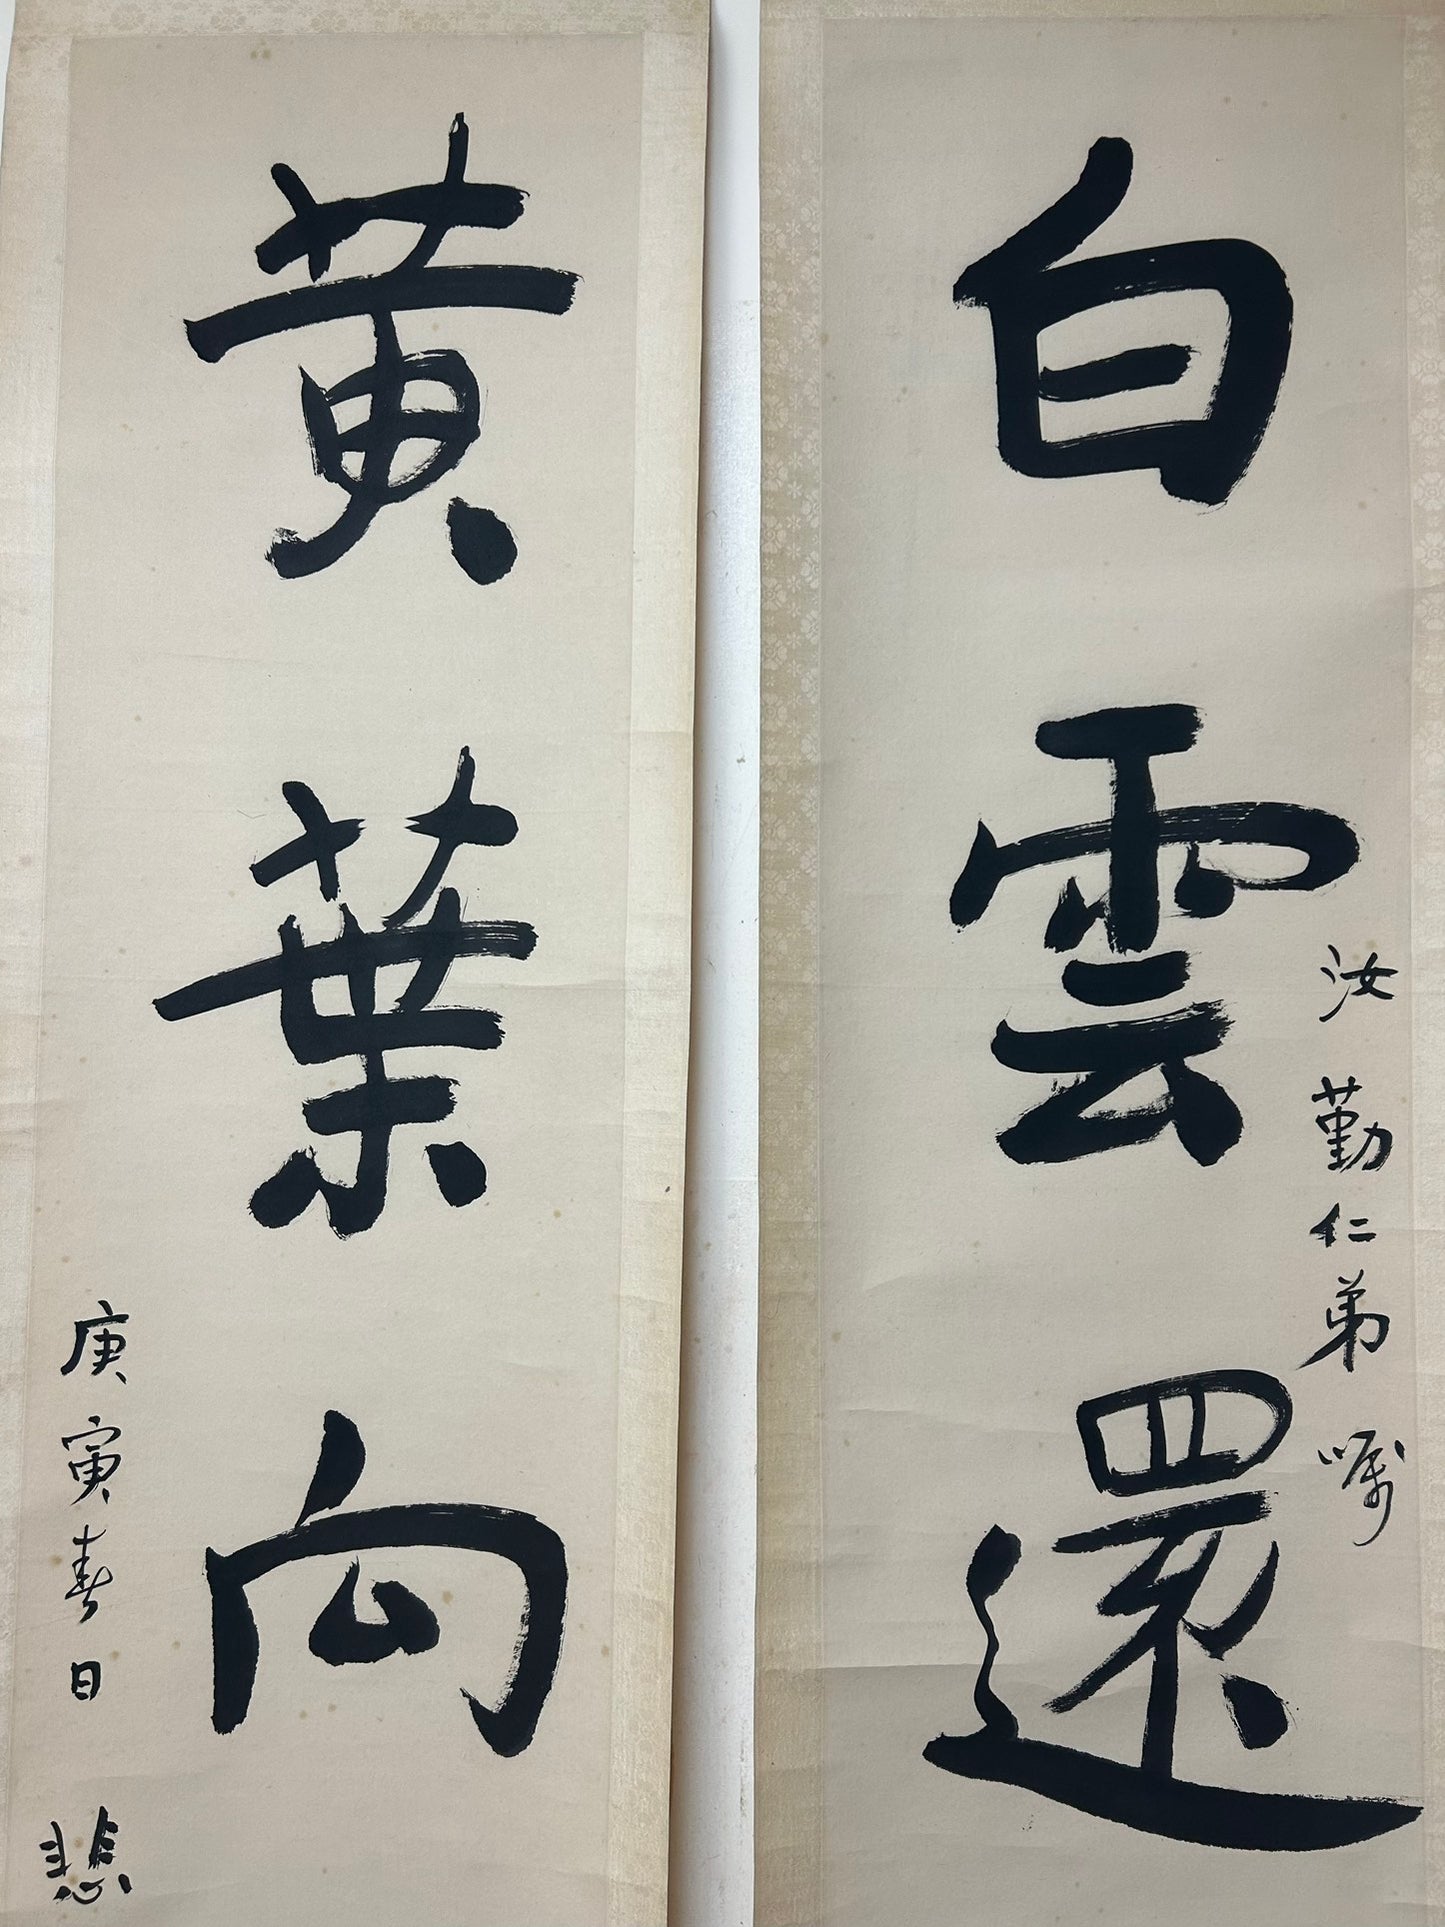 白雲還
汝勤仁弟嘱
黄葉向
庚寅春日
悲